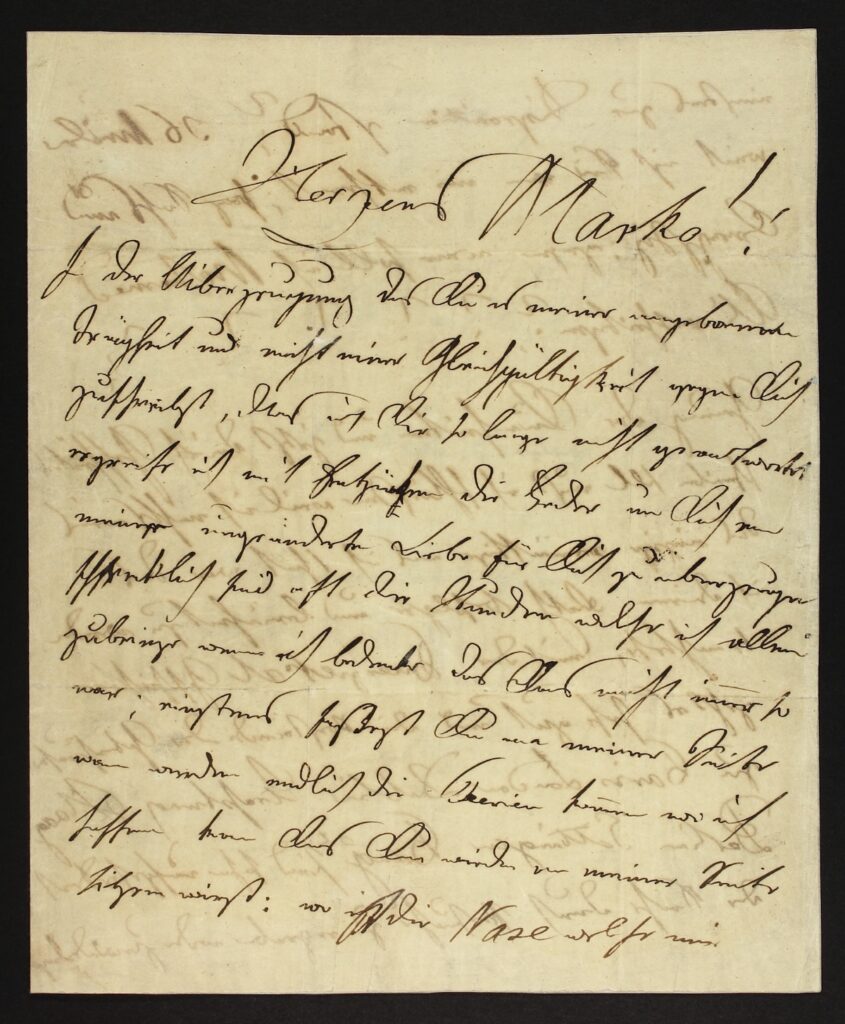 Herzens Marko!
In der Uiberzeugung das Du es meiner angebornen
Trägheit und nicht einer Gleichgültigkeit gegen Dich
zuschreibst, das ich Dir so lange nicht geantwortet
ergreife ich mit Entzücken die Feder um Dich von
meiner ungeänderten Liebe für Dich zu überzeugen
schrecklich sind oft die Stunden welche ich allein
zubringe wenn ich bedenke das das nicht immer so
war; einstens saßest Du an meiner Seite
wan werden endlich die Ferien kommen wo ich
hoffen kan das Du wieder an meiner Seite
sitzen wirst: wo ist die Nase welche mir